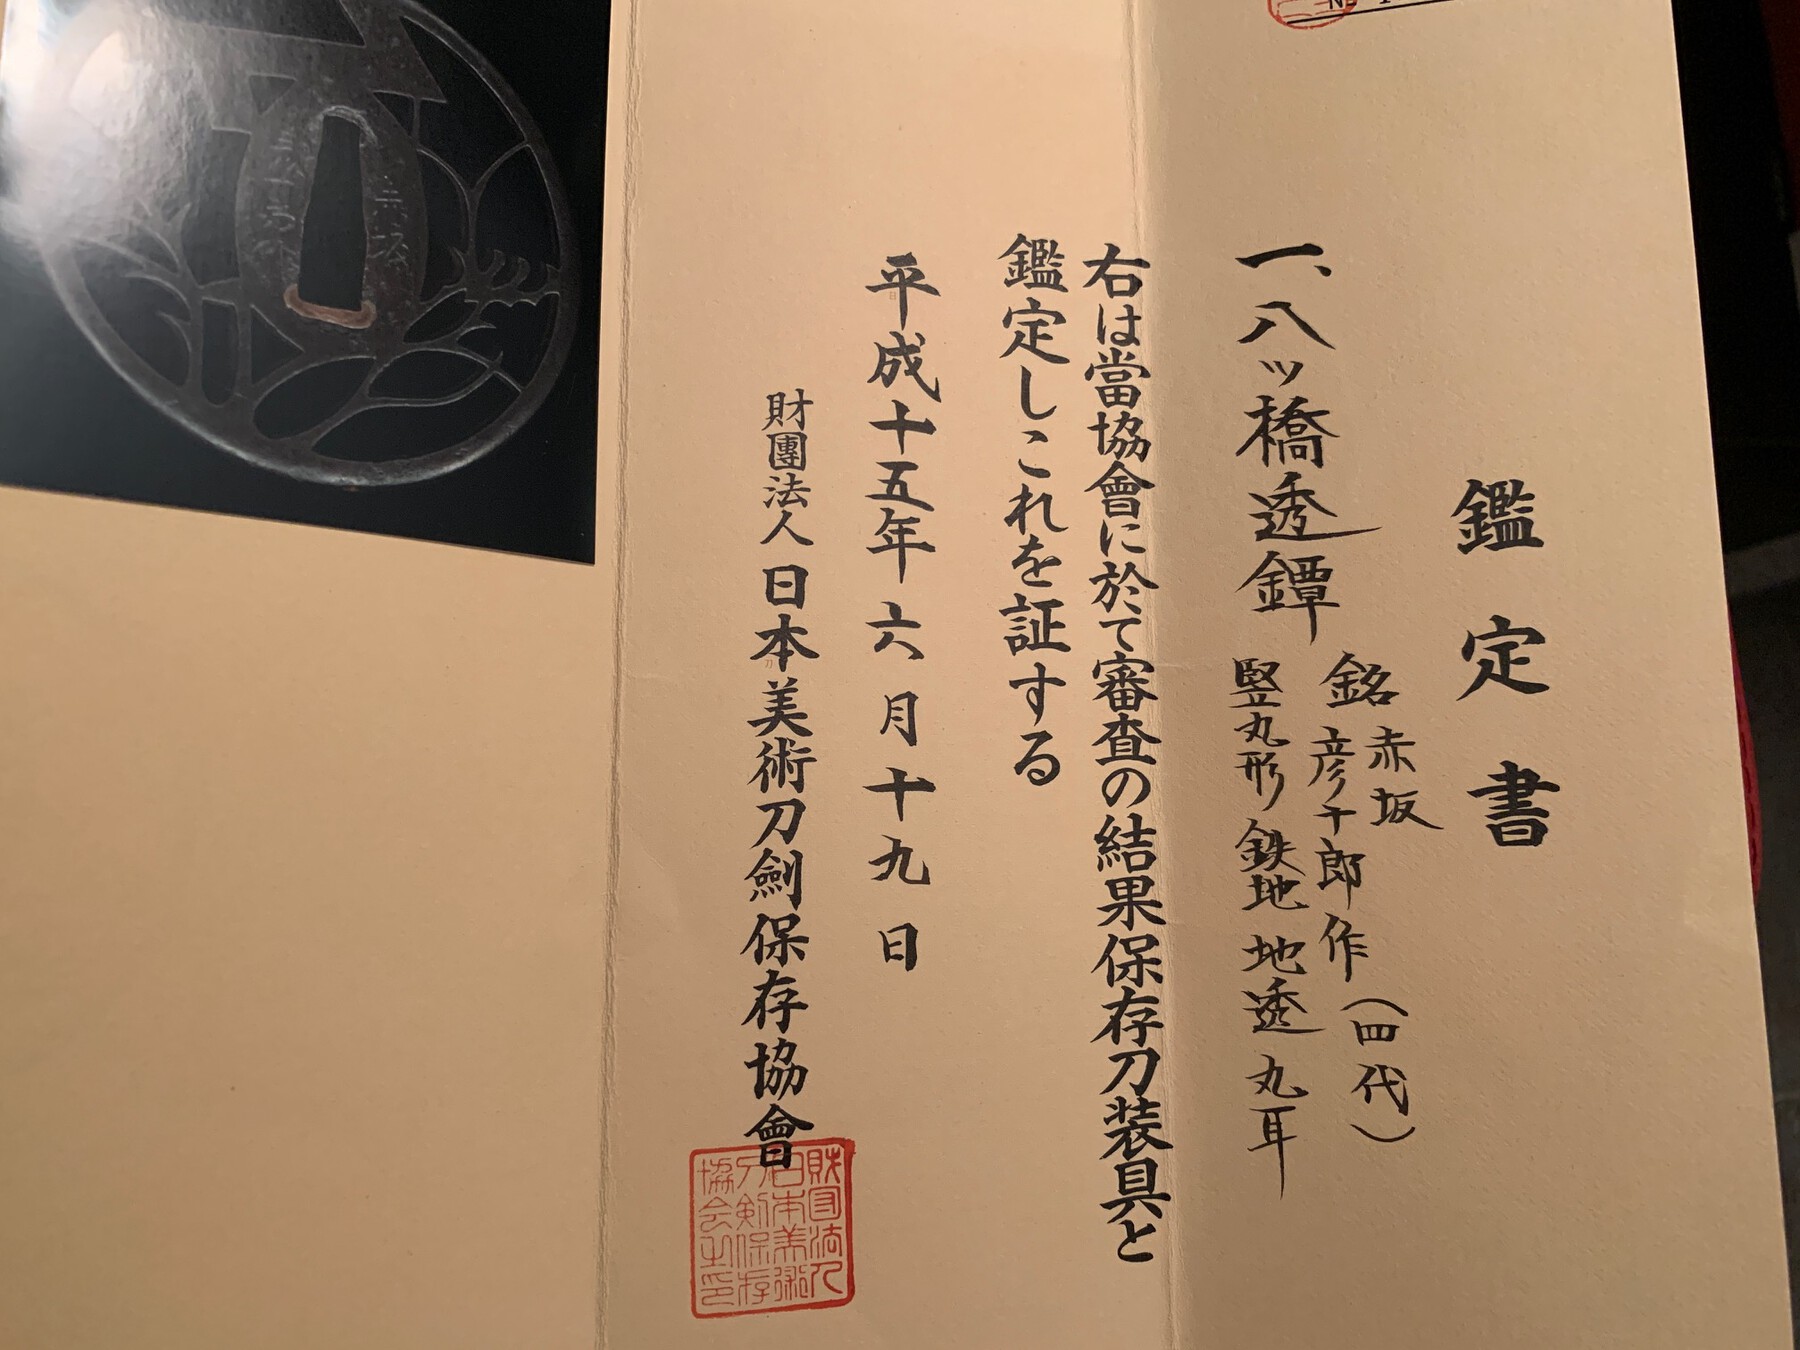 鑑定書
一、八ッ橋透鐔
銘 赤坂
彦十郎作(四代)
竪丸形 鉄地 地透 丸耳
右は當協會に於て審査の結果保存刀装具と
鑑定しこれを証する
平成十五年六月十九日
財團法人 日本美術刀劍保存協會
財団法人
日本美術
刀剣保存
協会之印